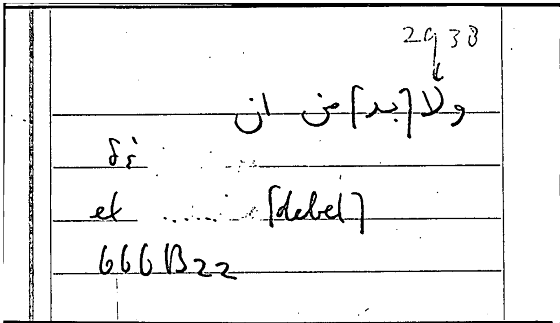 2930
ولا [بد] من ان
δέ
et ...... [debet]
666B22